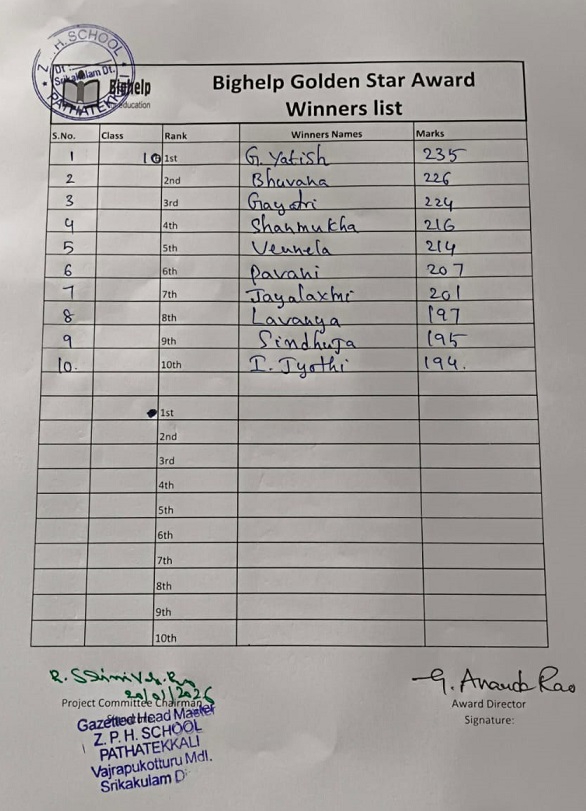 Z. P. H. SCHOOL
Dt :
Srikakulam Dt.
PATHATEKKALI
Bighelp
education
Bighelp Golden Star Award
Winners list
S.No. Class Rank Winners Names Marks
1 10 1st G. Yatish 235
2 2nd Bhuvana 226
3 3rd Gayatri 224
4 4th Shanmukha 216
5 5th Vennela 214
6 6th Pavani 207
7 7th Jayalaxmi 201
8 8th Lavanya 197
9 9th Sindhuja 195
10. 10th I. Jyothi 194.
1st
2nd
3rd
4th
5th
6th
7th
8th
9th
10th
G. Ananda Rao
Project Committee Chairman
Award Director
Signature:
Gazetted Head Master
Z. P. H. SCHOOL
PATHATEKKALI
Vajrapukotturu Mdl.
Srikakulam D